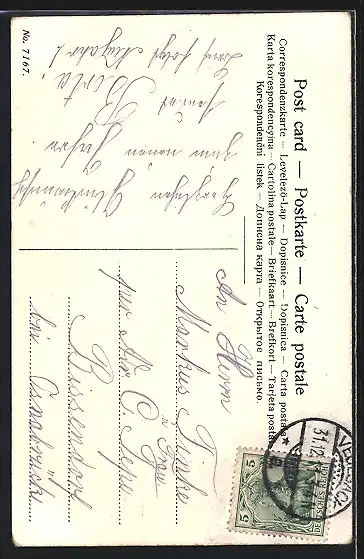 Post card — Postkarte — Carte postale
Correspondenzkarte — Levelező-Lap — Dopisnice — Dopisnica — Carta postala
Karta korespondencyjna — Cartolina postale — Briefkaart — Brefkort — Tarjeta postal
Korespondenční lístek — Дописна карта — Открытое письмо.
No. 7167.
Herzlichen Glückwunsch
zum neuen Jahre
sendet
Berta
An Herrn
Markus
u Frau
per Adr. C.
Bissendorf
bei Osnabrück
31.12
5 5